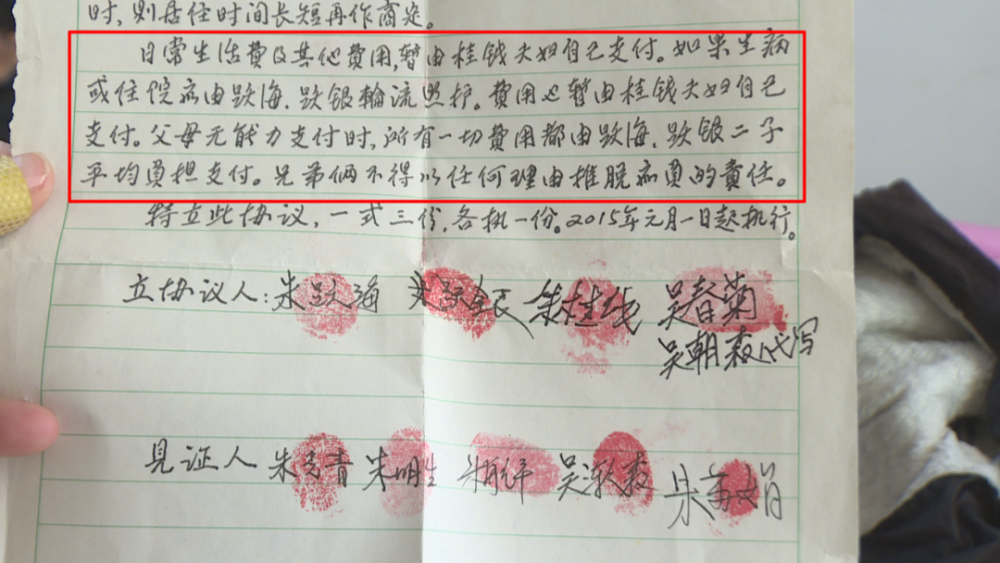 时,则居住时间长短再作商定。
日常生活费及其他费用,暂由桂钱夫妇自己支付。如果生病
或住院应由跃海、跃银轮流照护。费用也暂由桂钱夫妇自己
支付。父母无能力支付时,所有一切费用都由跃海、跃银二子
平均负担支付。兄弟俩不得以任何理由推脱应负的责任。
特立此协议,一式三份,各执一份。2015年元月一日起执行。
立协议人:朱跃海 朱跃银 朱桂钱 吴春菊
吴朝森代写
见证人 朱 青 朱明生 吴 森 朱 娟